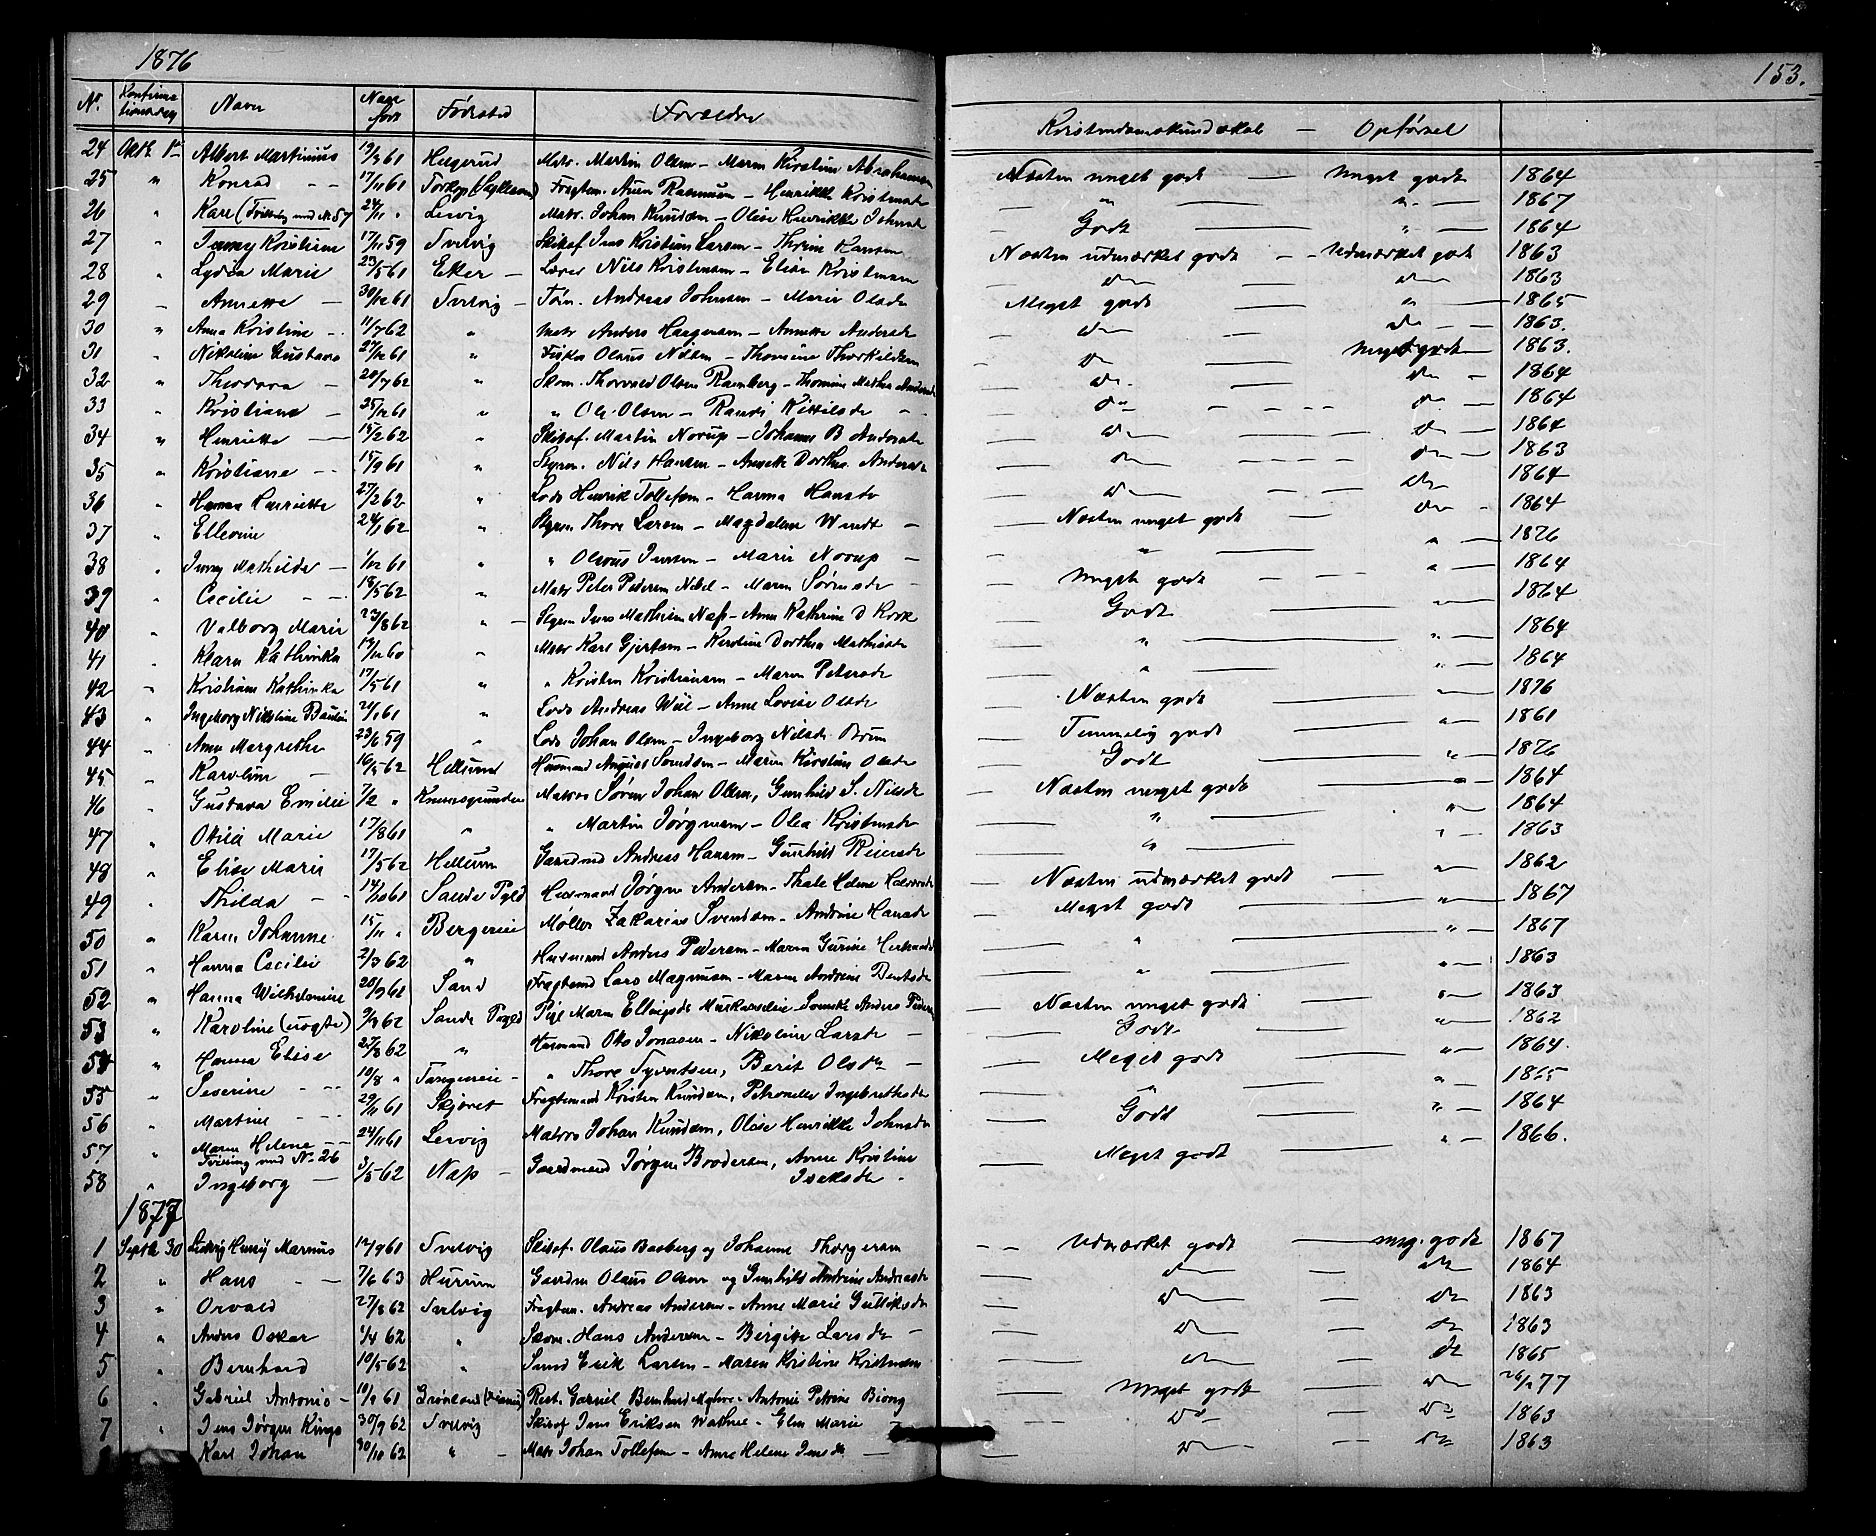 1876
153.
N. Konfirmationsdag Navn Naar født Fødested Forældre Kristendomskundskab — Opførsel
24 Oktb 1 Albert Martinius 19/3 61 Helgerud Matr. Martin Olsen — Maren Kirstine Abrahamsen Næsten meget godt — meget godt 1864
25 " Konrad 17/11 61 Fragtem. Rasmusen — Henrikke Kristensdr " " 1867
26 " Karl (Tvilling med N 57 24/11 " Lesvig Matr. Johan Knudsen — Oline Henrikke Johnsdr Godt " 1864
27 " Jenny Kristiane 17/11 59 Svelvig Skibsf. Jens Kristian Larsen — Thorine Hansen Næsten udmærket godt — Udmærket godt 1863
28 " Lydia Marie 23/5 61 Eker Lærer Nils Kristensen — Elise Kristensen do do 1863
29 " Annette — 30/12 61 Svelvig — Tøm. Andreas Johnsen — Marie Olsdr Meget godt " 1865
30 " Anna Kristine 11/7 62 " Matr Anders Haagensen — Annette Andersdr do do 1863.
31 " Nikoline Gustava 27/12 61 " Fisker Olaus Nilsen — Thomine Thorkildsen do Meget godt 1863.
32 " Theodora — 20/7 62 " Skom. Thorvald Olsen Ramberg — Thomine Mathea Andersdr do. do 1864
33 " Kristiane — 25/12 61 " " Ole Olsen — Randi Kittilsdr do do 1864
34 " Henriette — 15/2 62 " Skibsf. Martin Norup — Johanne B Andersdr do do 1864
35 " Kristiane 15/9 61 " Styrm. Nils Hansen — Annette Dorthea Andersdr do do 1863
36 " Hanna Henriette 27/2 62 " Lods Henrik Tollefsen — Hanna Hansdr do do 1864
37 " Ellevine 24/1 62 " Styrm Thore Larsen — Magdalene Wendt — Næsten meget godt do 1864
38 " Jenny Mathilde — 1/12 61 " " Olaus Jensen — Marie Norup — " " 1876
39 " Cecilie 18/5 62 " Matr Peter Pedersen — Maren Sørensdr Meget godt " 1864
40 " Valborg Marie 23/8 62 " Styrm Jens Mathisen Næss — Anne Kathrine D Kock Godt " 1864
41 " Klara Kathinka 19/12 60 " Matr Karl Gjertsen — Karoline Dorthea Mathisdr " " 1864
42 " Kristiane Kathinka 17/5 61 " " Kristen Kristiansen — Maren Petersdr " " 1864
43 " Ingeborg Nikoline Pauline 24/1 61 " Lods Andreas Wiil — Anne Lovise Olsdr Næsten godt " 1876
44 " Anne Margrethe 23/6 59 " Lods Johan Olsen — Ingeborg Nilsdr Temmelig godt " 1861
45 " Karoline — 16/5 62 Hellum Husmand August Svendsen — Maren Kirstine Olsdr Godt " 1876
46 " Gustava Emilie 7/2 " Knivsgrunden Matros Søren Johan Olsen, Gunhild S. Nilsdr Næsten meget godt " 1864
47 " Otilia Marie 17/8 61 " " Martin Jørgensen — Olea Kristensdr " " 1864
48 " Elise Marie 17/5 62 Hellum Gaardmd Andreas Hansen — Gunhild Reiersdr " " 1863
49 " Thilda 14/10 61 Sande Pgld Husmand Jørgen Andersen — Thale Helene Næsten udmærket godt " 1862
50 " Karen Johanne 15/11 " Bergereie Møller Zakarias Svendsen — Andrine Hansdr Meget godt " 1867
51 " Hanna Cecilie 2/3 62 " Husmand Anders Pedersen — Maren Gurine " " 1867
52 " Hanna Wilhelmine 20/9 61 Sand Fragtemd Lars Magnusen — Maren Andrine Berntsdr " " 1863
53 " Karoline (uægte) 3/3 62 Sande Pgld Pige Maren Næsten meget godt " 1863
54 " Hanna Elise 27/8 62 " Husmand Otto Jonasen — Nikoline Larsdr — Godt " 1862
55 " Severine 10/8 " Tangeneie — " Thore Syvertsen, Berit Olsdr — Meget godt " 1864.
56 " Martine 29/11 61 Skjøret Fragtemand Kristen Knudsen, Petronelle Ingebretsdr " " 1865
57 " Maren Helene Tvilling med N. 26 24/11 61 Lesvig Matros Johan Knudsen, Oline Henrikke Johnsdr Godt " 1864
58 " Ingeborg — 3/5 62 Næs — Gaardmand Jørgen Brodersen, Anne Kristine Isaksdr. Meget godt " 1866.
1877
1 Septb 30 Ludvig Henrij Marius 12/9 61 Svelvig Skibsf. Olaus Basberg og Johanne Thorgersen Udmærket godt meg. godt 1867
2 " Hans 7/6 63 Hurum Gaardm Olaus Olsen og Gunhild Andrine Andreasdr do do 1864
3 " Orvald 27/8 62 Svelvig Fragtem. Andreas Andersen — Anne Marie Gulliksdr do do 1863
4 " Anders Oskar 1/4 62 " Skom. Hans Andersen — Birgitte Larsdr — do do 1863
5 " Bernhard 10/5 62 " Smed Erik Larsen — Maren Kristine Kristensen do do 1865
6 " Gabriel Antonio — 10/9 61 Rest. Gabriel Bernhard — Antonie Petrine Biong Meget godt do 77
7 " Jens Jørgen Kings 30/9 62 Svelvig Skibsf Jens Eriksen — Elen Marie — do do 1863
8 Karl Johan 30/10 62 " — Matr Johan Tollefsen — Anne Helene Jensdr — do do 1863